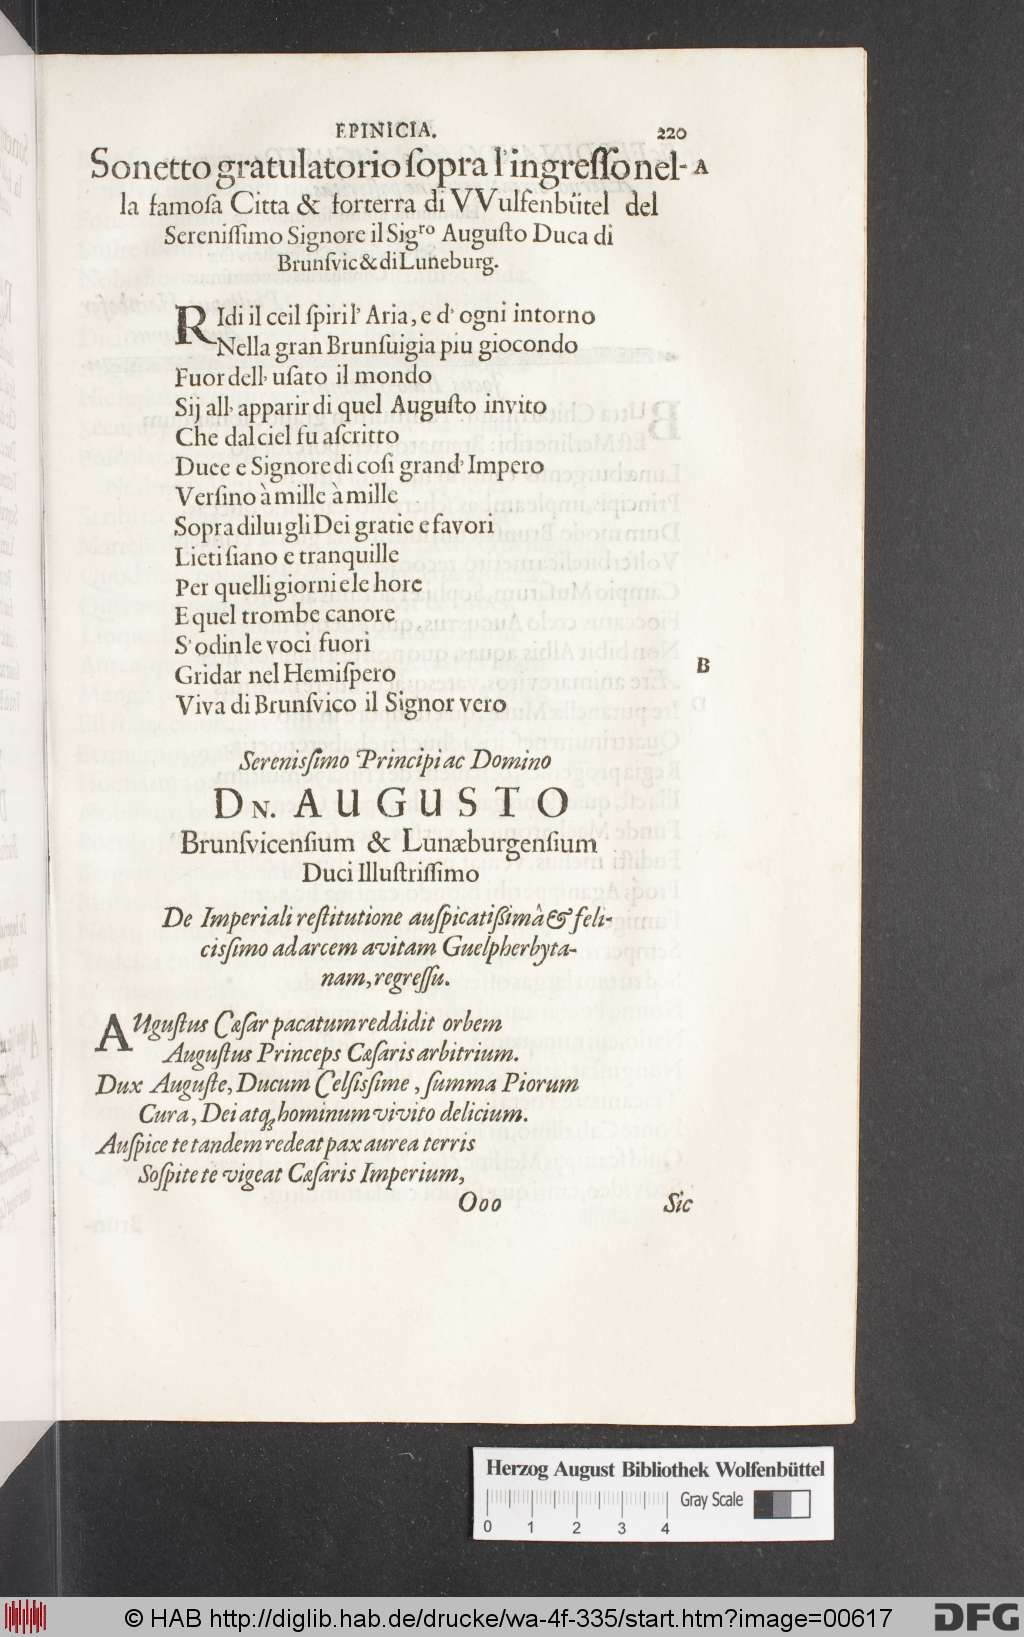 EPINICIA. 220
Sonetto gratulatorio ſopra l'ingreſſo nel- A
la famoſa Citta & forterra di VVulfenbütel del
Sereniſſimo Signore il Sigro Auguſto Duca di
Brunſvic & di Luneburg.
RIdi il ceil ſpiri l' Aria, e d' ogni intorno
Nella gran Brunſuigia piu giocondo
Fuor dell' uſato il mondo
Sij all' apparir di quel Auguſto invito
Che dal ciel fu aſcritto
Duce e Signore di coſi grand' Impero
Verſino à mille à mille
Sopra di lui gli Dei gratie e favori
Lieti ſiano e tranquille
Per quelli giorni e le hore
E quel trombe canore
S' odin le voci fuori
Gridar nel Hemiſpero B
Viva di Brunſvico il Signor vero
Serenisſimo Principi ac Domino
DN. AUGUSTO
Brunſvicenſium & Lunæburgenſium
Duci Illuſtriſſimo
De Imperiali reſtitutione auſpicatißimâ & feli-
cisſimo ad arcem avitam Guelpherbyta-
nam, regreſſu.
AUguſtus Cæſar pacatum reddidit orbem
Auguſtus Princeps Cæſaris arbitrium.
Dux Auguſte, Ducum Celſisſime, ſumma Piorum
Cura, Dei atq; hominum vivito delicium.
Auſpice te tandem redeat pax aurea terris
Soſpite te vigeat Cæſaris Imperium,
Ooo Sic
Herzog August Bibliothek Wolfenbüttel
Gray Scale
0 1 2 3 4
© HAB http://diglib.hab.de/drucke/wa-4f-335/start.htm?image=00617 DFG